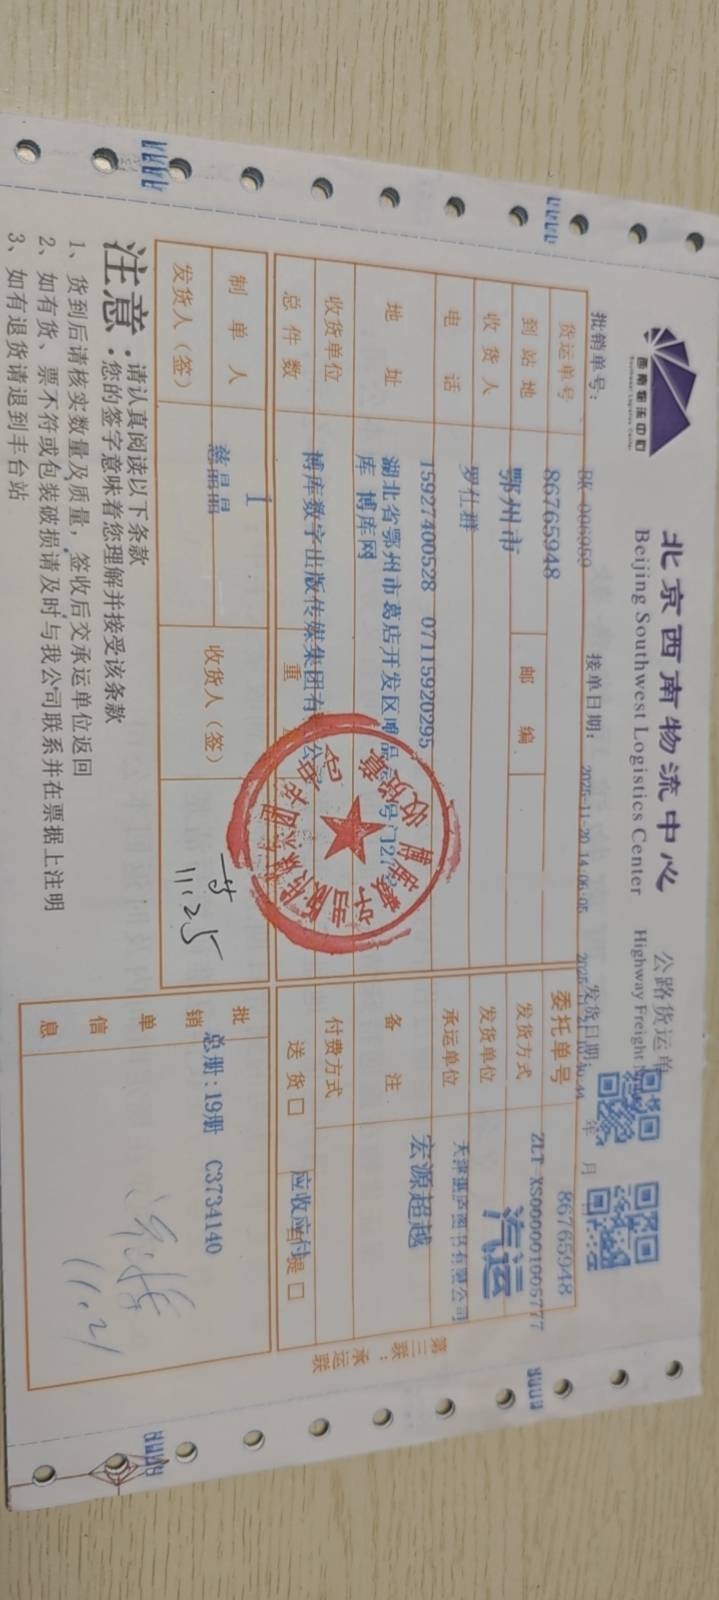 西南物流中心
Southwest Logistics Center
北京西南物流中心
Beijing Southwest Logistics Center
公路货运单
Highway Freight
批销单号：
接单日期： 2025-11-20 14:06:05
发货日期：
年 月
货运单号 86765948
委托单号 86765948
ZLT XS000001005777
到站地 鄂州市 邮编
发货方式 汽运
收货人 罗仕群
发货单位
电话 15927400528 07115920295
承运单位 宏源超越
地址 湖北省鄂州市葛店开发区唯品
库 博库网
备注
收货单位 博库数字出版传媒集团有
付费方式
总件数 1 重
送货□ 应收应付 提□
制单人
收货人（签）
发货人（签）
11.25
批销单信息
总册：19册 C3734140
11.21
第三联：承运联
注意：请认真阅读以下条款
您的签字意味着您理解并接受该条款
1、货到后请核实数量及质量，签收后交承运单位返回
2、如有货、票不符或包装破损请及时与我公司联系并在票据上注明
3、如有退货请退到丰台站